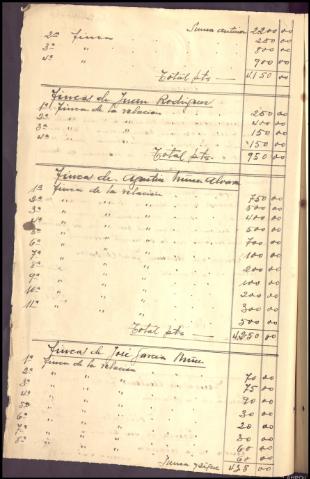 Suma anterior 2200 00
2ª finca " 250 00
3ª " " 800 00
4ª " " 900 00
Total pts 4150 00
Fincas de Juan Rodriguez
1ª finca de la relacion 250 00
2ª " " 400 00
3ª " " 150 00
4ª " " 150 00
Total pts 950 00
Fincas de Agustin Nuñez Alvarez
1ª finca de la relacion 750 00
2ª " " " 500 00
3ª " " " 400 00
4ª " " " 500 00
5ª " " " 700 00
6ª " " " 100 00
7ª " " " 200 00
8ª " " " 100 00
9ª " " " 200 00
10ª " " " 300 00
11ª " " " 500 00
Total pts 4250 00
Fincas de José Garcia Nuñez
1ª finca de la relacion 70 00
2ª " " " 75 00
3ª " " " 00
4ª " " " 30 00
5ª " " " 20 00
6ª " " " 00
7ª " " " 60 00
8ª " " " 60 00
Suma y sigue 435 00